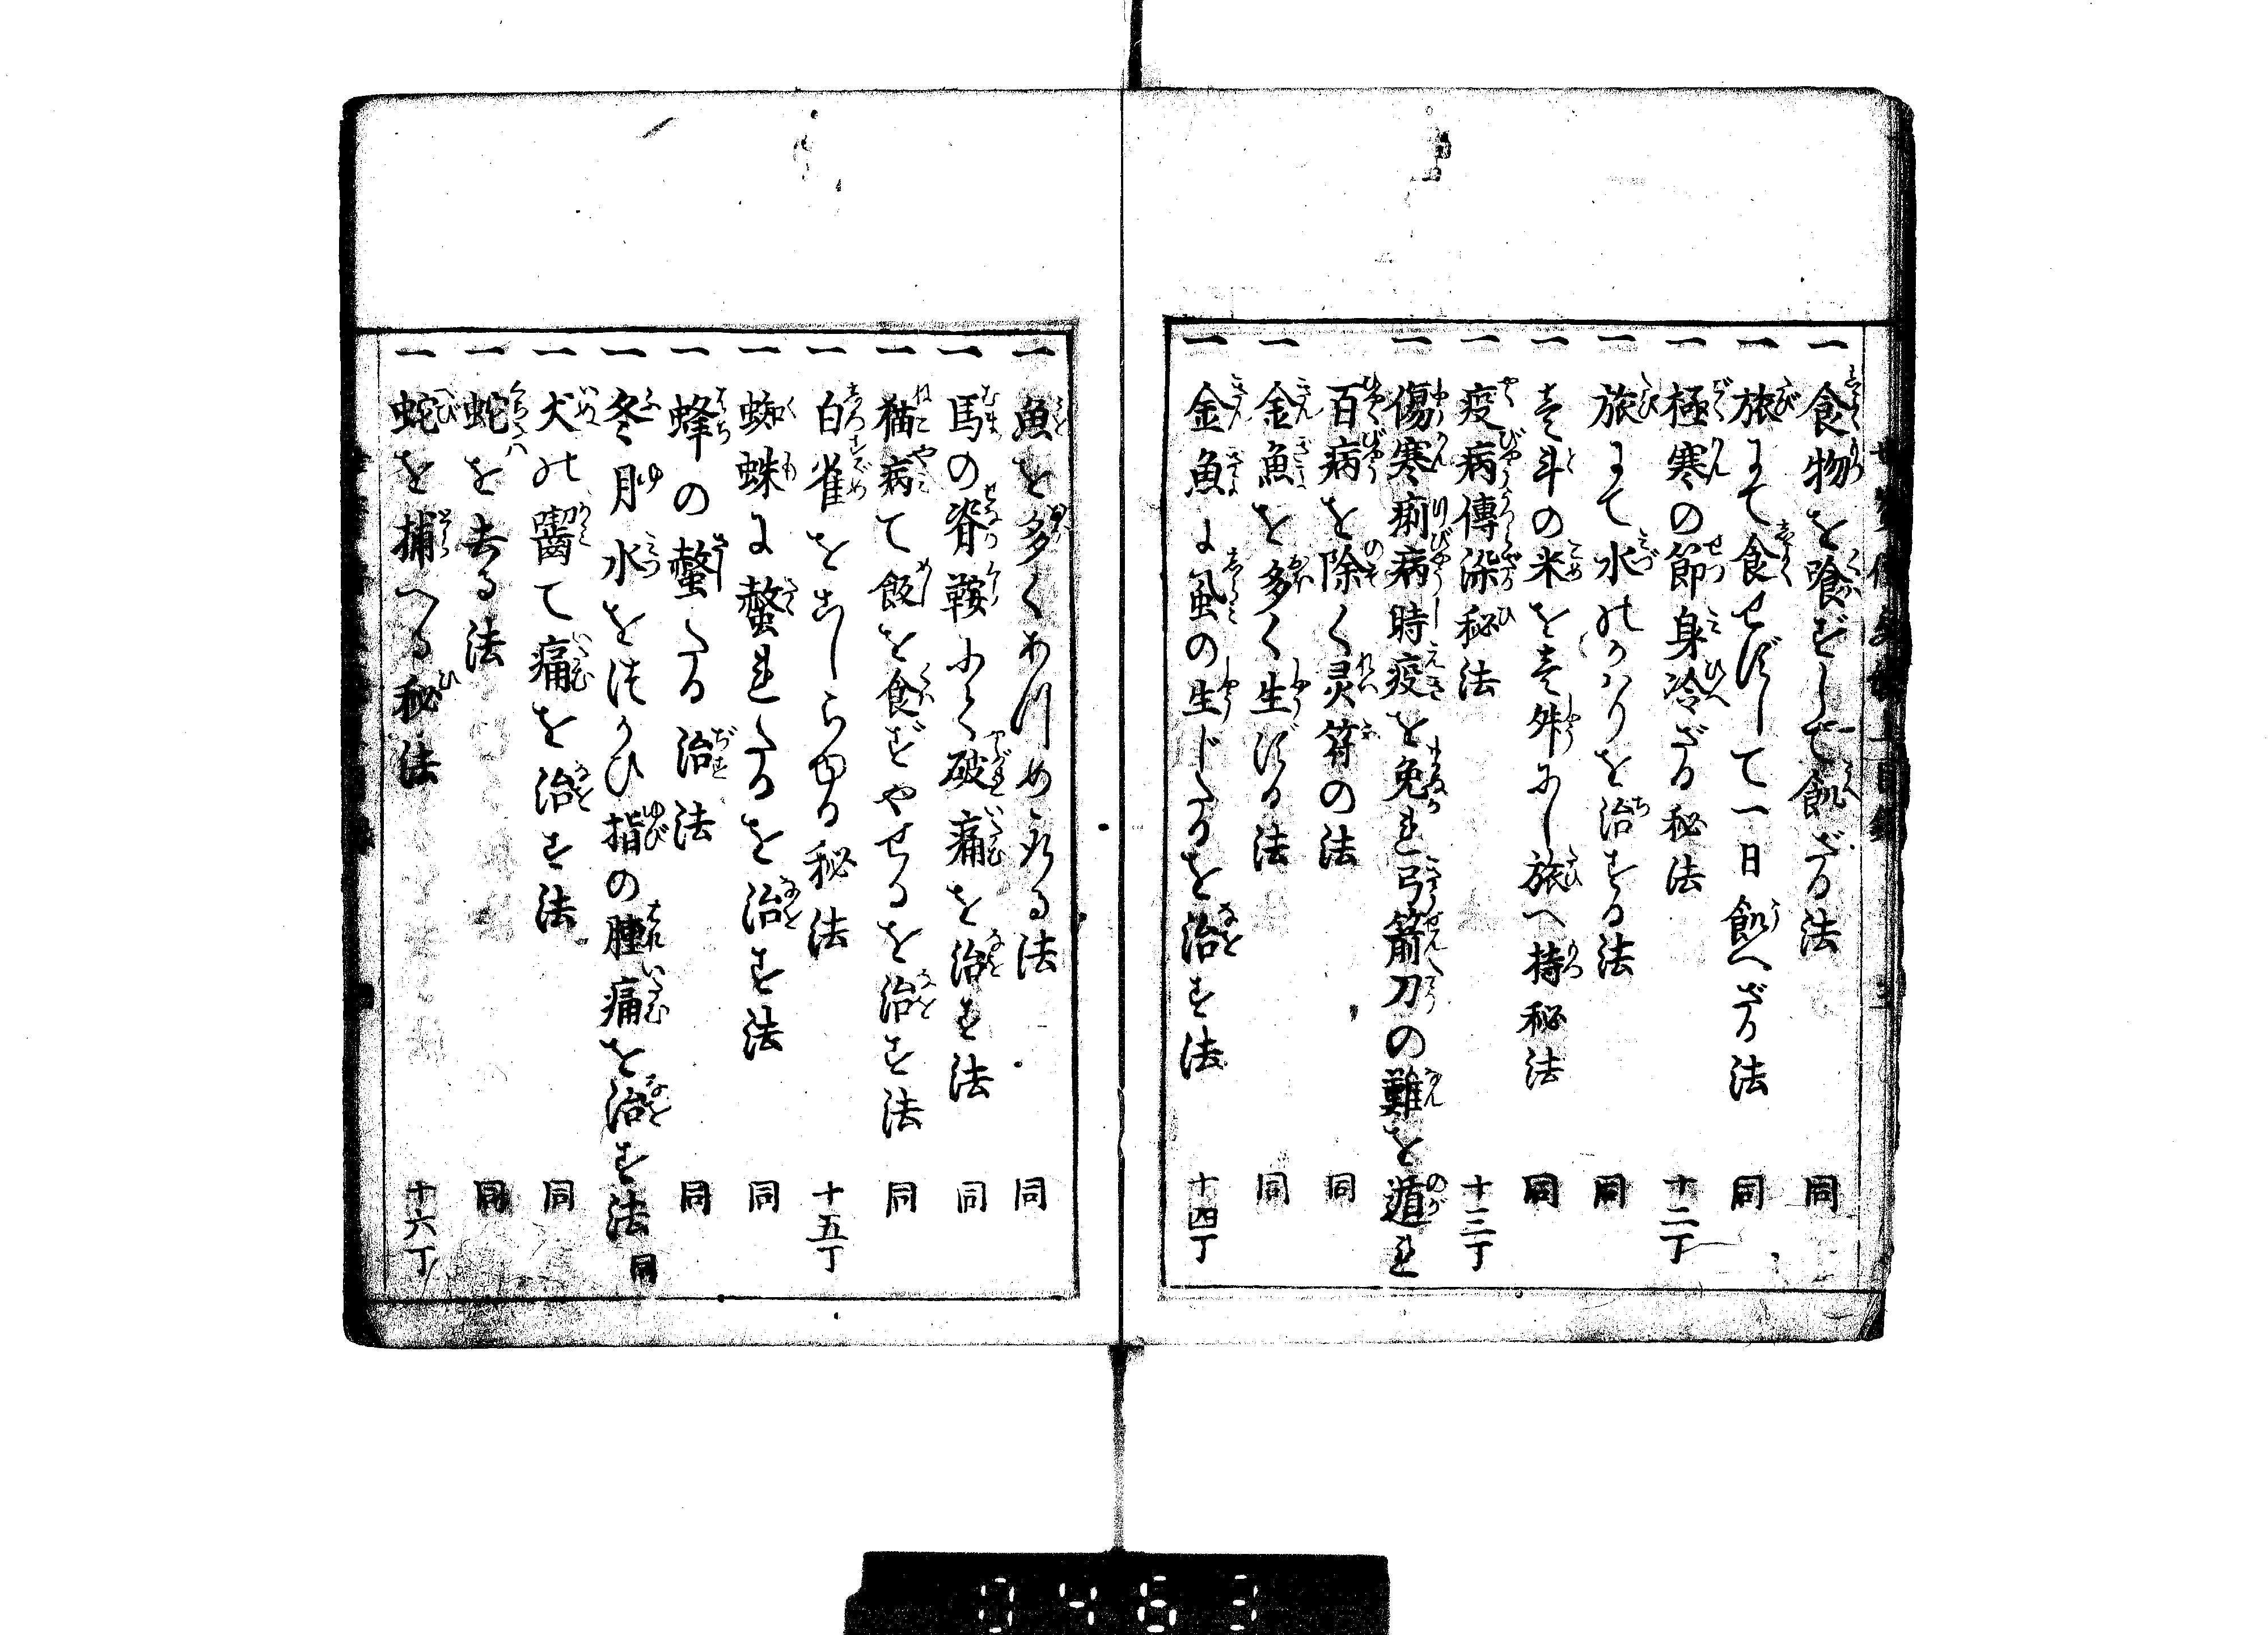 一 食物を喰ずして飢ざる法 同
一 旅にて食せずして一日飢へざる法 同
一 極寒の節身冷ざる秘法 十二丁
一 旅にて水のかはりを治する法 同
一 壱斗の米を壱舛にし旅へ持秘法 同
一 疫病傳染秘法 十三丁
一 傷寒痢病時疫を免れ弓箭刀の難を遁れ
百病を除く灵符の法 同
一 金魚を多く生ずる法 同
一 金魚に虱の生じたるを治す法 十四丁
一 魚を多くあつめ取る法 同
一 馬の脊鞍にて破痛を治す法 同
一 猫病て飯を食ずやせるを治す法 同
一 白雀をこしらゆる秘法 十五丁
一 蜘蛛に螫れたるを治す法 同
一 蜂の螫たる治法 同
一 冬月水をつかひ指の腫痛を治す法 同
一 犬の齧て痛を治す法 同
一 蛇を去る法 同
一 蛇を捕へる秘法 十六丁